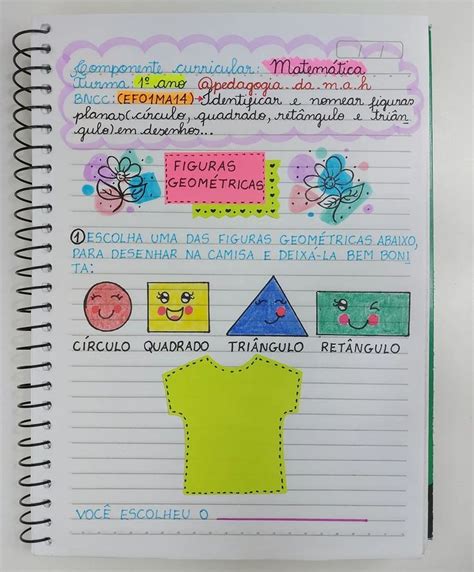 Componente curricular: Matemática
Turma: 1º ano @pedagogia_da_m.a.h
BNCC: (EF01MA14)→ Identificar e nomear figuras
planas (círculo, quadrado, retângulo e triân
gulo) em desenhos...
FIGURAS
GEOMÉTRICAS
1 ESCOLHA UMA DAS FIGURAS GEOMÉTRICAS ABAIXO,
PARA DESENHAR NA CAMISA E DEIXA-LA BEM BONI
TA:
CÍRCULO QUADRADO TRIÂNGULO RETÂNGULO
VOCÊ ESCOLHEU O